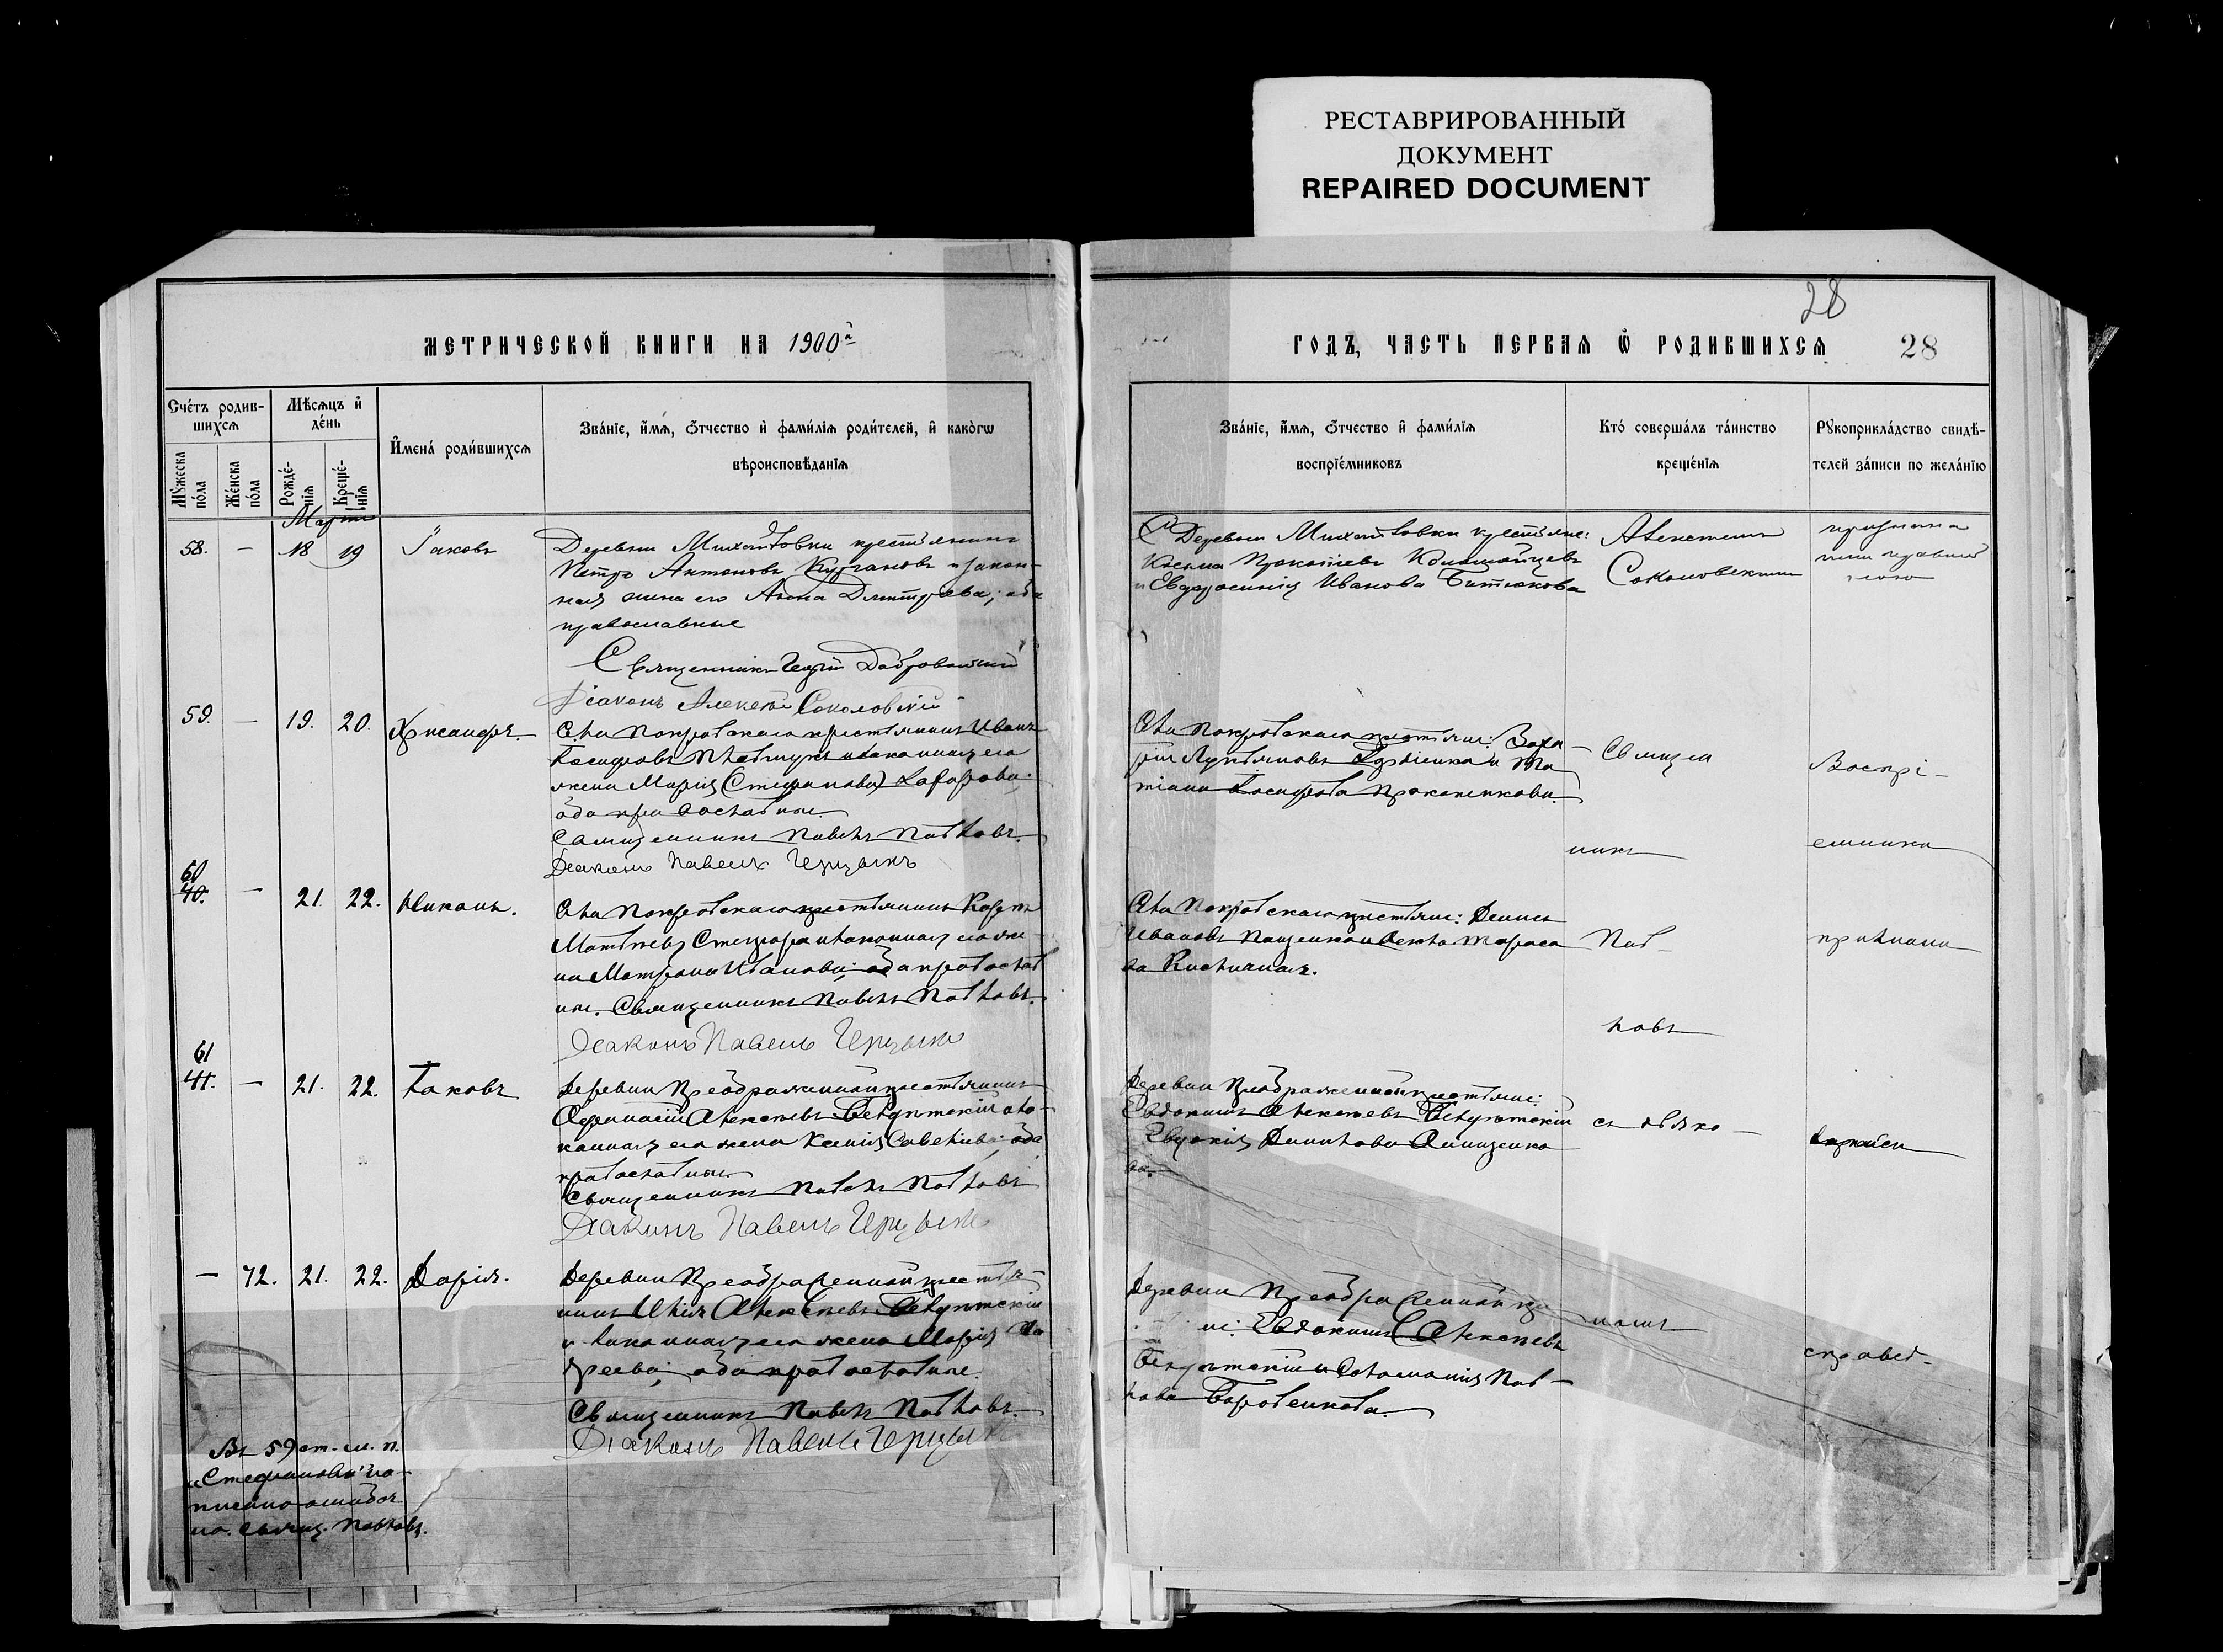 РЕСТАВРИРОВАННЫЙ
ДОКУМЕНТ
REPAIRED DOCUMENT
28
МЕТРИЧЕСКОЙ КНИГИ НА 1900й
ГОДЪ, ЧАСТЬ ПЕРВАЯ Ѡ РОДИВШИХСЯ
28
Счéтъ родив-
шихсѧ
Мѣсѧцъ и҆
дéнь
Мꙋ́жеска
пóла
Жéнска
пóла
Рождé-
нїѧ
Креще́-
нїѧ
И҆менá роди́вшихсѧ
Звáнїе, и҆́мѧ, ѻ҆́тчество и҆ фами́лїѧ роди́телей, и҆ какóгѡ
вѣроисповѣ́данїѧ
Звáнїе, и҆́мѧ, ѻ҆́тчество и҆ фами́лїѧ
воспрїе́мниковъ
Ктó совершáлъ тáинство
креще́нїѧ
Рꙋкоприклáдство свидѣ́-
телей зáписи по желáнїю
Мартъ
58. — 18 19 Іаковъ
Деревни Михайловки крестьянинъ
Петръ Антоновъ Кургановъ и закон-
ная жена его Анна Дмитріева; оба
православные
Священникъ Георгій Добровольскій
Діаконъ Алексѣй Соколовскій
Деревни Михайловки крестьяне:
Косьма Прокопіевъ
и Евфросинія Иванова Битюкова
Алексѣемъ
Соколовскимъ
59. — 19. 20. Хрисанфъ.
Села Покровскаго крестьянинъ Иванъ
Іосифовъ и законная его
жена Марія (Стефанова) Захарова;
оба православные.
Священникъ Павелъ Павловъ.
Діаконъ Павелъ Герцыкъ
Села Покровскаго крестьяне: Заха-
рій Лукьяновъ и Та-
тіана Іосифова Прокопенкова.
Священ
никъ
Воспрі-
емники
60
40. — 21. 22. Никонъ.
Села Покровскаго крестьянинъ Карпъ
Матѳіевъ и законная его же-
на Матрона Иванова; оба православ
ные. Священникъ Павелъ Павловъ.
Діаконъ Павелъ Герцыкъ
Села Покровскаго крестьяне: Денисъ
Ивановъ Пащенко и Ѳекла Тараси
ва
Пав-
ловъ
признали
61
41. — 21. 22. Іаковъ
Деревни Преображенной крестьянинъ
Аѳанасій Алексѣевъ и за-
конная его жена Ксенія Савельева; оба
православные
Священникъ Павелъ Павловъ
Діаконъ Павелъ Герцыкъ
Деревни Преображенной крестьяне:
Евдокимъ Алексѣевъ
Евдокія Данилова Онищенко
ва.
съ діако-
запись
— 42. 21. 22. Дарія.
Деревни Преображенной крестья-
нинъ Илія Алексѣевъ
и законная его жена Марія Ан
дреева; оба православные.
Священникъ Павелъ Павловъ.
Діаконъ Павелъ Герцыкъ
Деревни Преображенной кре
не: Евдокимъ Алексѣевъ
и Соломонія Пав-
лова Боровенкова.
номъ
справед-
Въ 59 ст. м. п.
"Стефанова" на-
писано ошибоч
но. Свящ. Павловъ.